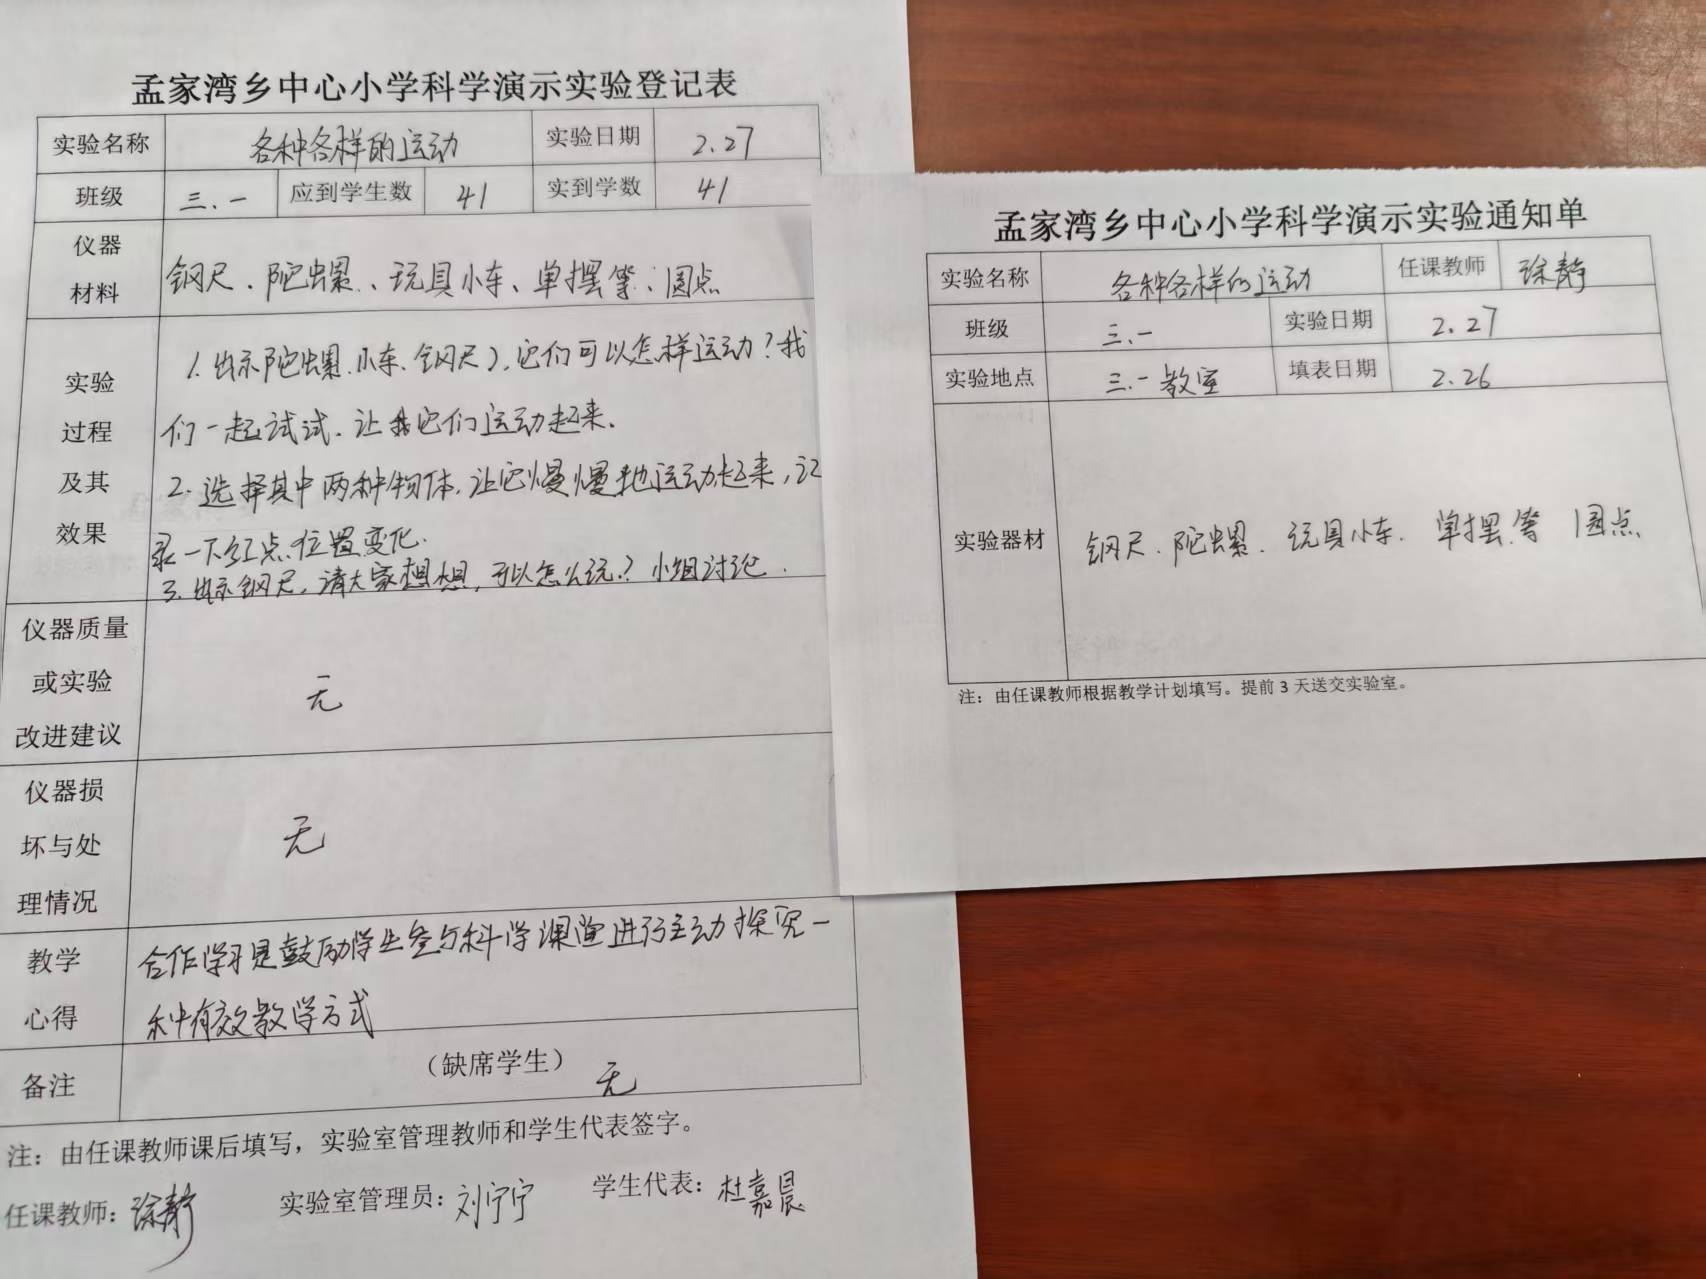 孟家湾乡中心小学科学演示实验登记表
实验名称 各种各样的运动 实验日期 2.27
班级 三.一 应到学生数 41 实到学数 41
仪器
材料
钢尺、陀螺、玩具小车、单摆等、圆点
实验
过程
及其
效果
1.出示陀螺、小车、钢尺),它们可以怎样运动?我
们一起试试.让它们运动起来.
2.选择其中两种物体,让它慢慢地运动起来,记
录一下红点位置变化.
3.出示钢尺,请大家想想,可以怎么玩?小组讨论.
仪器质量
或实验
改进建议
无
仪器损
坏与处
理情况
无
教学
心得
合作学习是鼓励学生参与科学课堂进行主动探究一
种有效教学方式
备注 (缺席学生) 无
注:由任课教师课后填写,实验室管理教师和学生代表签字。
任课教师:徐静 实验室管理员:刘宁宁 学生代表:杜嘉晨
孟家湾乡中心小学科学演示实验通知单
实验名称 各种各样的运动 任课教师 徐静
班级 三.一 实验日期 2.27
实验地点 三.一教室 填表日期 2.26
实验器材 钢尺、陀螺、玩具小车、单摆等 圆点
注:由任课教师根据教学计划填写。提前3天送交实验室。